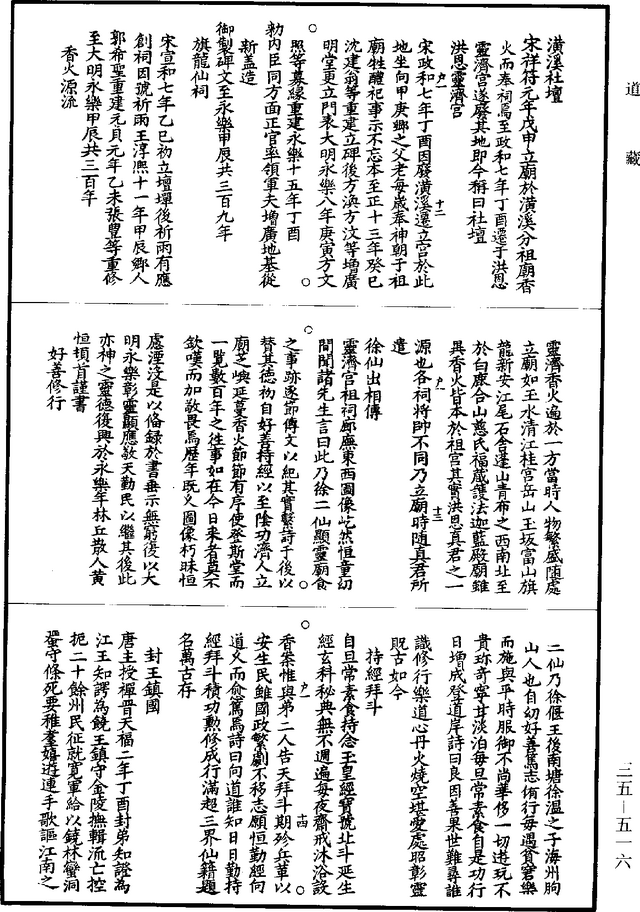 道藏
潢溪社壇
宋祥符元年戊申立廟於潢溪分祖廟香
火而奉祠焉至政和七年丁酉遷于洪恩
靈濟宮遂廢其地即今稱曰社壇
洪恩靈濟宮
宋政和七年丁酉因廢潢溪遷立宮於此
地坐向甲庚鄉之父老每歲奉神朝于祖
廟牲醴祀事示不忘本至正十三年癸巳
沈建翁等重建立碑後方渙方汶等增廣
明堂更立門表大明永樂八年庚寅方文
照等募緣重建永樂十五年丁酉
勑內臣同方面正官率領軍夫增廣地基從
新蓋造
御製碑文至永樂甲辰共三百九年
旗龍仙祠
宋宣和七年乙巳初立壇墠後祈雨有應
創祠因號祈雨王淳熙十一年甲辰鄉人
郭希聖重建元貞元年乙未張豐等重修
至大明永樂甲辰共三百年
香火源流
靈濟香火遍於一方當時人物繁盛隨處
立廟如玉水清江桂宮岳山玉坂富山旗
龍新安江尾石舍蓬山青布之西南北至
於白鹿合山慈氏福歲護法迦藍殿廟雖
異香火皆本於祖宮其實洪恩真君之一
源也各祠將帥不同乃立廟時随真君所
遣
徐仙出相傳
靈濟宮祖祠廊廡東西圖像屹然恒童幼
間聞諸先生言曰此乃徐二仙顯靈廟食
之事跡逐節傳文以紀其實繫詩于後以
替其德初自好善持經以至陰功濟人立
廟芝嶼延蔓香火節節有序使登斯堂而
一覧數百年之往事如在今日来者莫不
欽嘆而加敬畏焉歷年既乂圖像朽昧恒
慮湮没是以俻録於書垂示無窮後以大
明永樂彰靈顯應敬天勤民以繼其後此
亦神之靈德復興於永樂年林丘散人黃
恒頓首謹書
好善修行
二仙乃徐偃王後南塘徐温之子海州朐
山人也自幼好善篤志侑行每遇貧窘樂
而施與平時服御不尚華侈一切遊玩不
貴珎奇寧甘淡泊每旦常素食自是功行
日增成登道岸詩曰良因善果世難尋誰
識修行樂道心丹火燒空堪愛處昭彰靈
貺古如今
持經拜斗
自旦常素食持念玉皇經寳號北斗延生
經玄科秘典無不週遍每夜齋戒沐浴設
香案惟與弟二人告天拜斗期殄兵革以
安生民雖國政繁劇不移志願恒勤經向
道乂而愈篤焉詩曰向道誰知日日勤持
經拜斗積功勲修成行滿超三界仙籍題
名萬古存
封王鎮國
唐主授禪晋天福二年丁酉封弟知證為
江王知諤為饒王鎮守金陵撫輯流亡控
扼二十餘州民征就寛軍給以鐃林蠻洞
蜑守條死要稚羣嬉遊連手歌謳江南之
三五—五一六